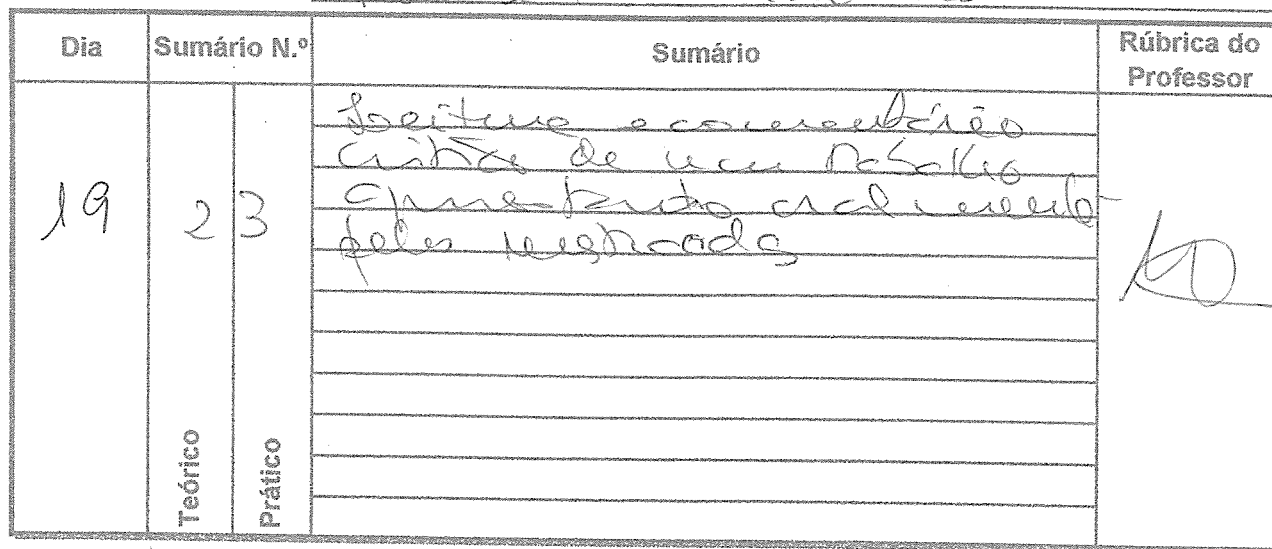 Dia Sumário N.º Sumário Rúbrica do Professor
19 2 3
Leitura e comentário
crítico de um trabalho
apresentado oralmente
pelos
Teórico
Prático